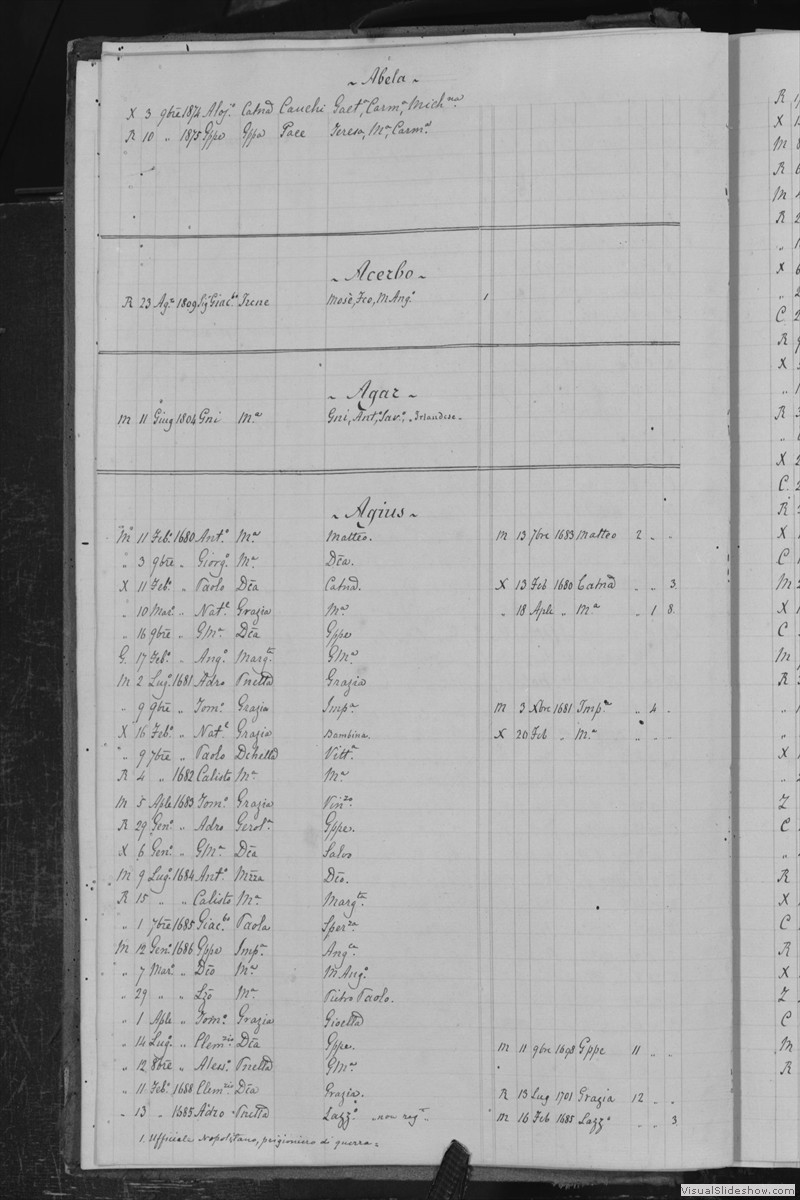 ~ Abela ~
X 3 9bre 1874 Aloj.o Catnā Cauchi Gaet.a, Carm.a, Mich.na
R 10 „ 1875 Gppe Gppa Pace Teresa, M.a, Carm.a
~ Acerbo ~
R 23 Ag.to 1809 Sig.r Giac.bo Irene Mosè, Fco, M Ang.o 1
~ Agar ~
M 11 Giug 1804 Gni M.a Gni, Ant.o, Sav.o, ~ Irlandese ~
~ Agius ~
M 11 Feb.o 1680 Ant.o M.a Matteo. M 13 7bre 1683 Matteo 2 „ „
„ 3 9bre „ Giorg.o M.a Dca.
X 11 Feb.o „ Paolo Dca Catnā. X 13 Feb 1680 Catnā „ „ 3
„ 10 Mar.o „ Nat.e Grazia M.a „ 18 Aple „ M.a „ 1 8
„ 16 9bre „ GM.a Dca Gppe
G. 17 Feb.o „ Ang.o Marg.ta GM.a
M 2 Lug.o 1681 Adro Pnella Grazia
„ 9 9bre „ Tom.o Grazia Imp.a M 3 Xbre 1681 Imp.a „ 4 „
X 16 Feb.o „ Nat.e Grazia Bambina. X 20 Feb „ M.a „ „ „
„ 9 7bre „ Paolo Dchella Vitt.a
R 4 „ 1682 Calisto M.a M.a
M 5 Aple 1683 Tom.o Grazia Vin.zo
R 29 Gen.o „ Adro Gerol.a Gppe.
X 6 Gen.o „ GM.a Dca Salvo
M 9 Lug.o 1684 Ant.o Mzza Dco.
R 15 „ „ Calisto M.a Marg.ta
„ 1 7bre 1685 Giac.bo Paola Sper.za
M 12 Gen.o 1686 Gppe Imp.a Ang.ca
„ 7 Mar.o „ Dco M.a M Ang.o
„ 29 „ „ Lzo M.a Pietro Paolo.
„ 1 Aple „ Tom.o Grazia Gioella
„ 14 Lug.o „ Clem.zio Dca Gppe. M 11 9bre 1698 Gppe 11 „ „
„ 12 8bre „ Aless.o Pnella GM.a
„ 11 Feb.o 1688 Clem.zio Dca Grazia. R 13 Lug 1701 Grazia 12 „ „
„ 13 „ 1685 Adro Pnella Lazz.o non reg.to M 16 Feb 1685 Lazz.o „ „ 3
1. Ufficiale Napolitano, prigioniero di guerra =
VisualSlideshow.com